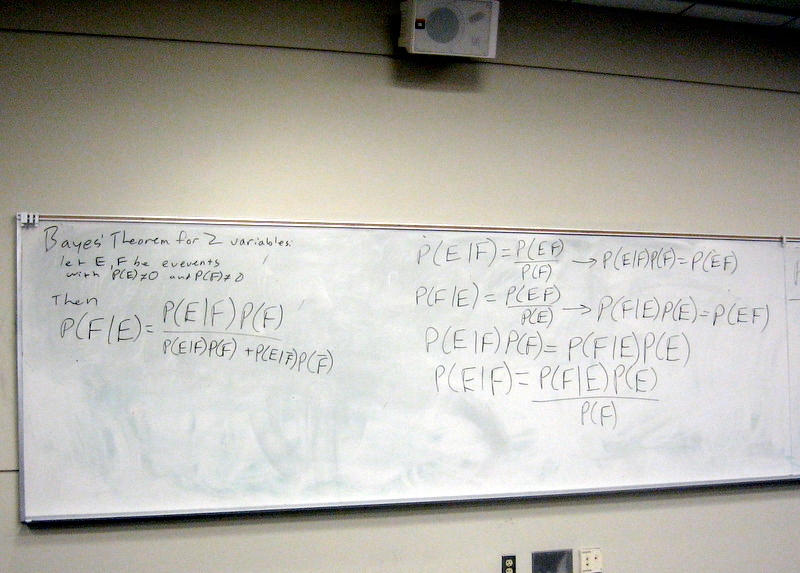 Bayes' Theorem for 2 variables:
let E, F be evevents
with P(E)≠0 and P(F)≠0
Then
P(F|E)= P(E|F)P(F)
P(E|F)P(F) + P(E|F̅)P(F̅)
P(E|F)= P(EF)/P(F) → P(E|F)P(F)=P(EF)
P(F|E)= P(EF)/P(E) → P(F|E)P(E)=P(EF)
P(E|F)P(F)= P(F|E)P(E)
P(E|F)= P(F|E)P(E)
P(F)